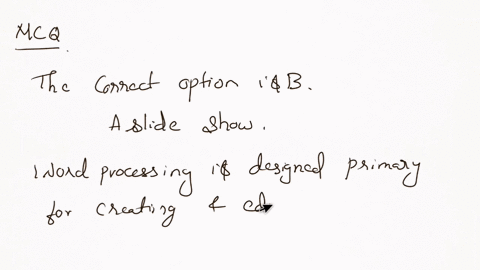 MCQ.
The Correct option is B.
A slide show.
Word processing is designed primary
for creating & ed